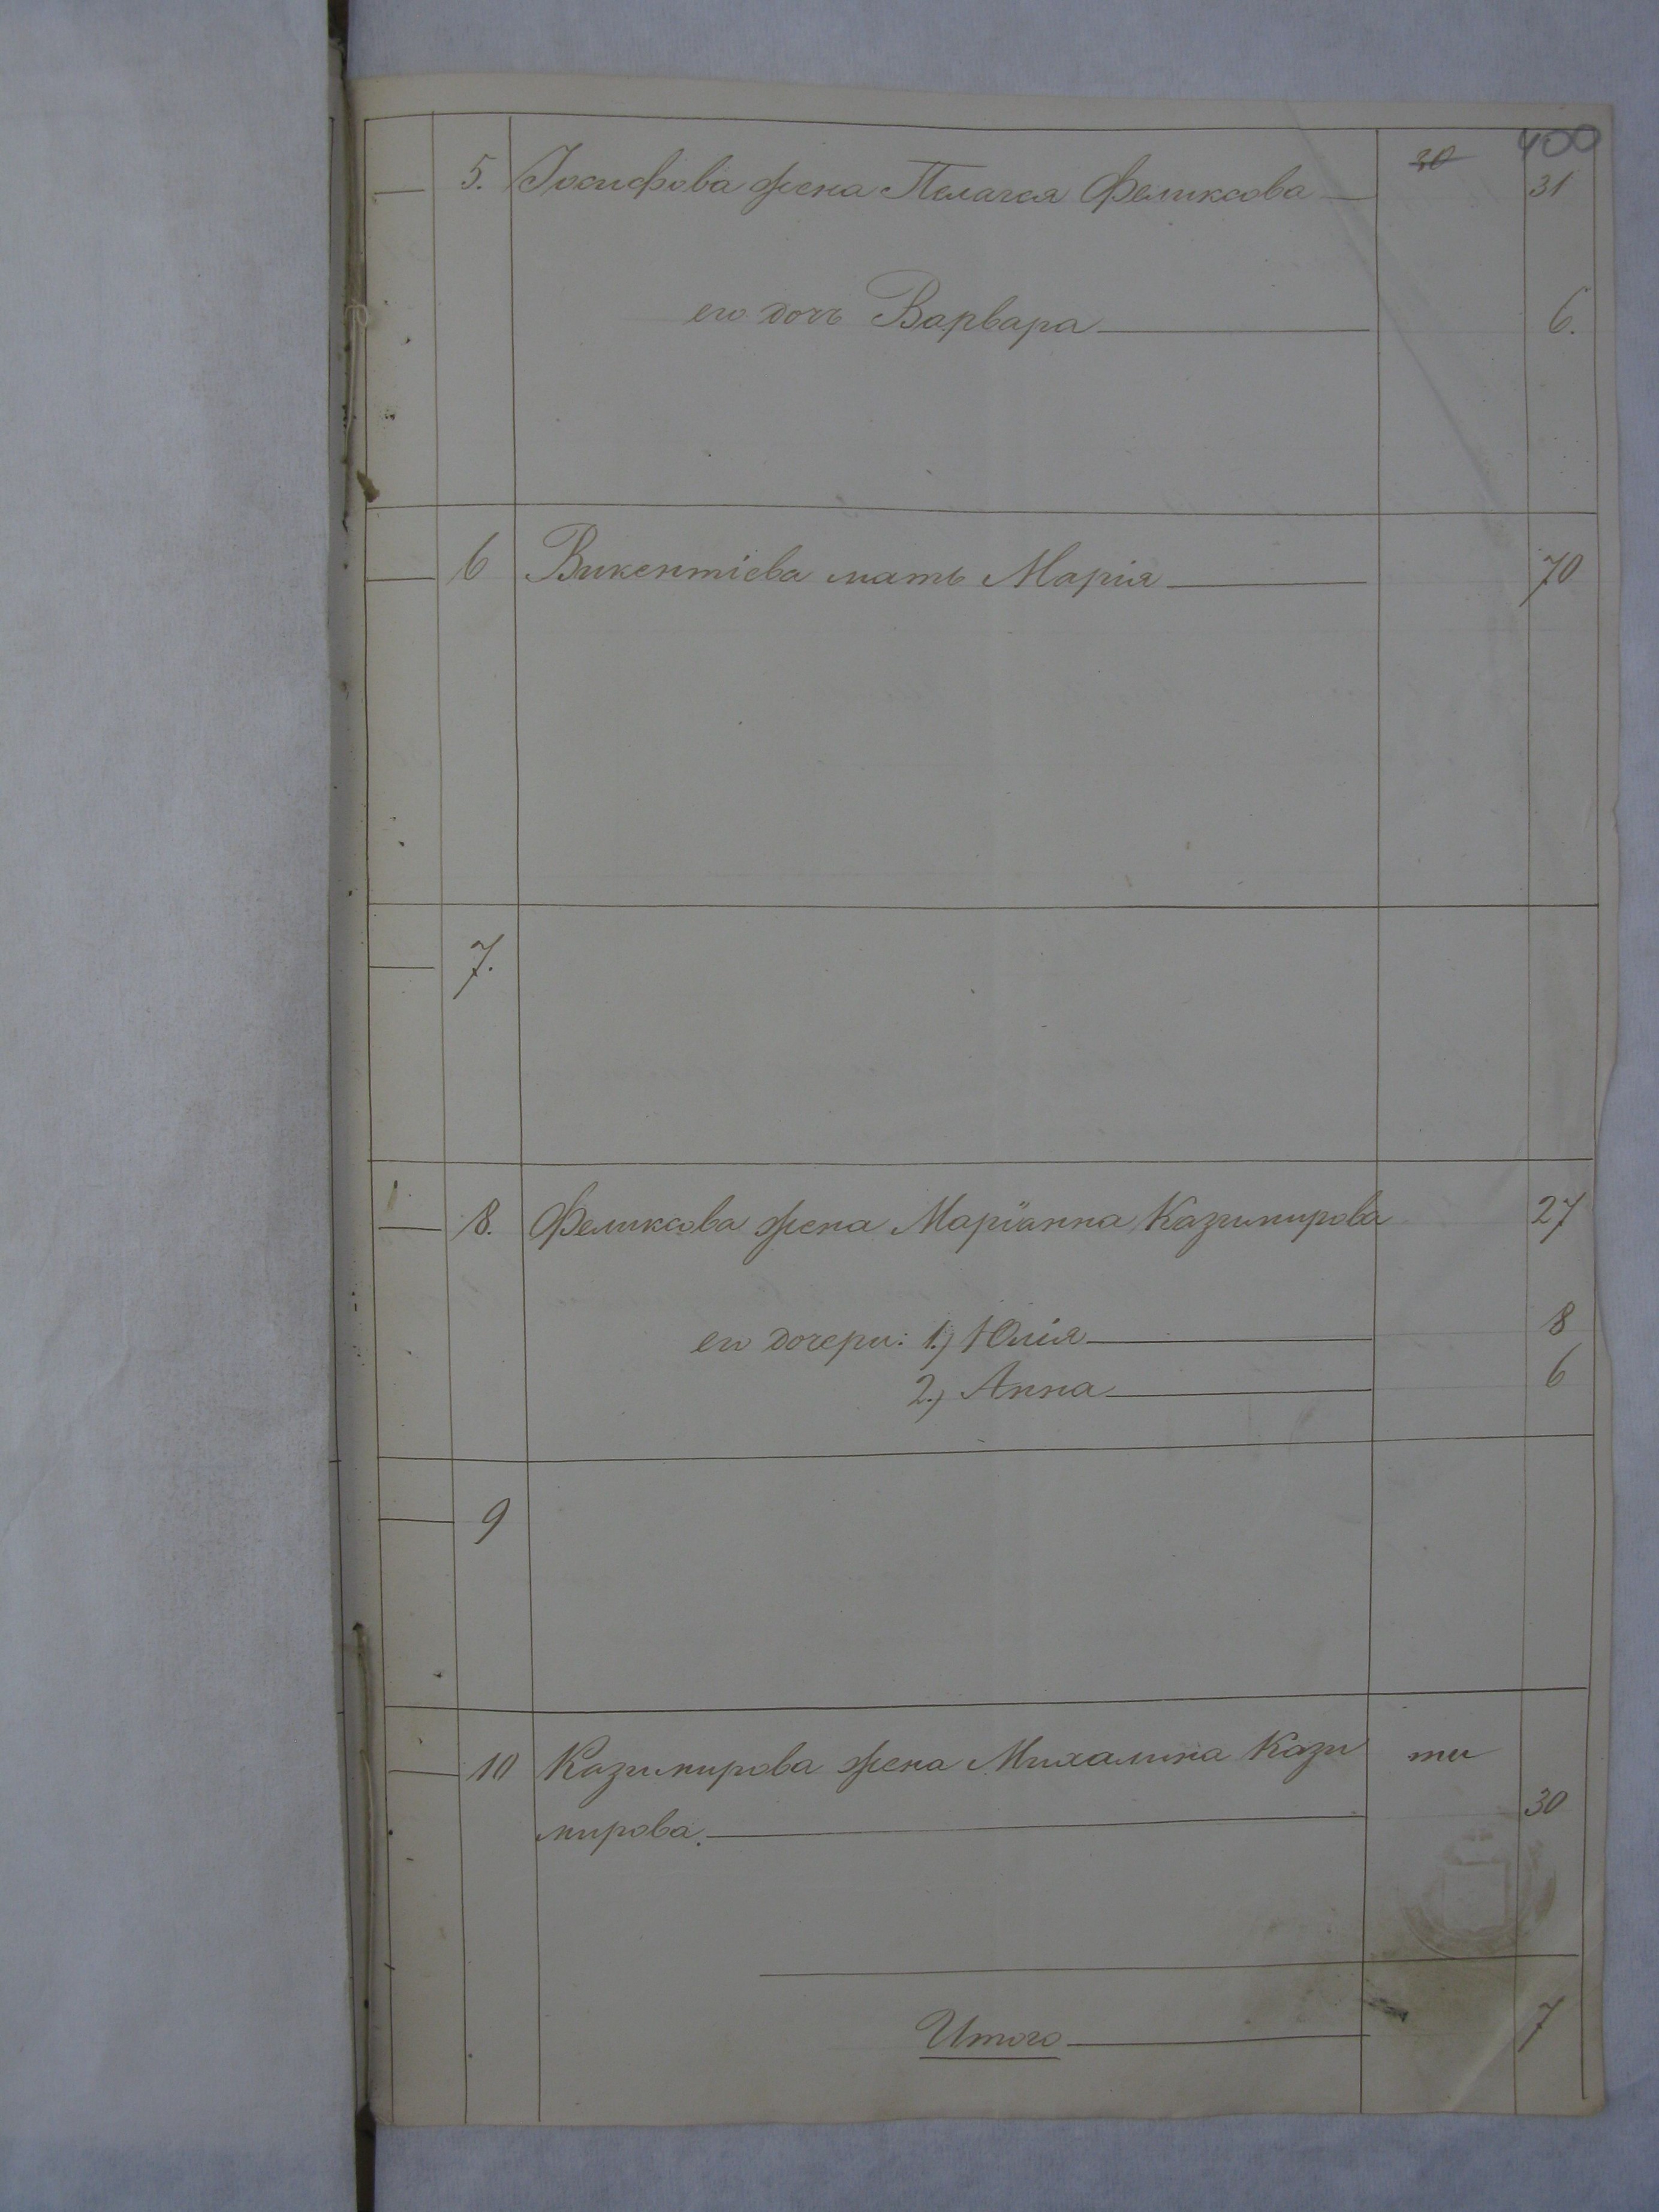 400
— 5. Іосифова жена Пелагея Феликсова — 30 31
его дочь Варвара — 6.
— 6 Викентіева мать Марія — 70
— 7.
— 8. Феликсова жена Маріанна Казимирова 27
его дочери: 1.) Юлія — 8
2.) Анна — 6
— 9
— 10 Казимирова жена Михалина Кази
мирова. — 30
Итого — 7